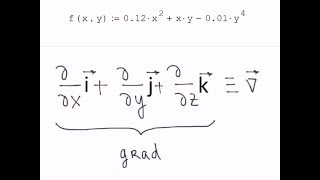 f(x,y) := 0.12·x² + x·y − 0.01·y⁴
∂/∂x i⃗ + ∂/∂y j⃗ + ∂/∂z k⃗ ≡ ∇⃗
grad